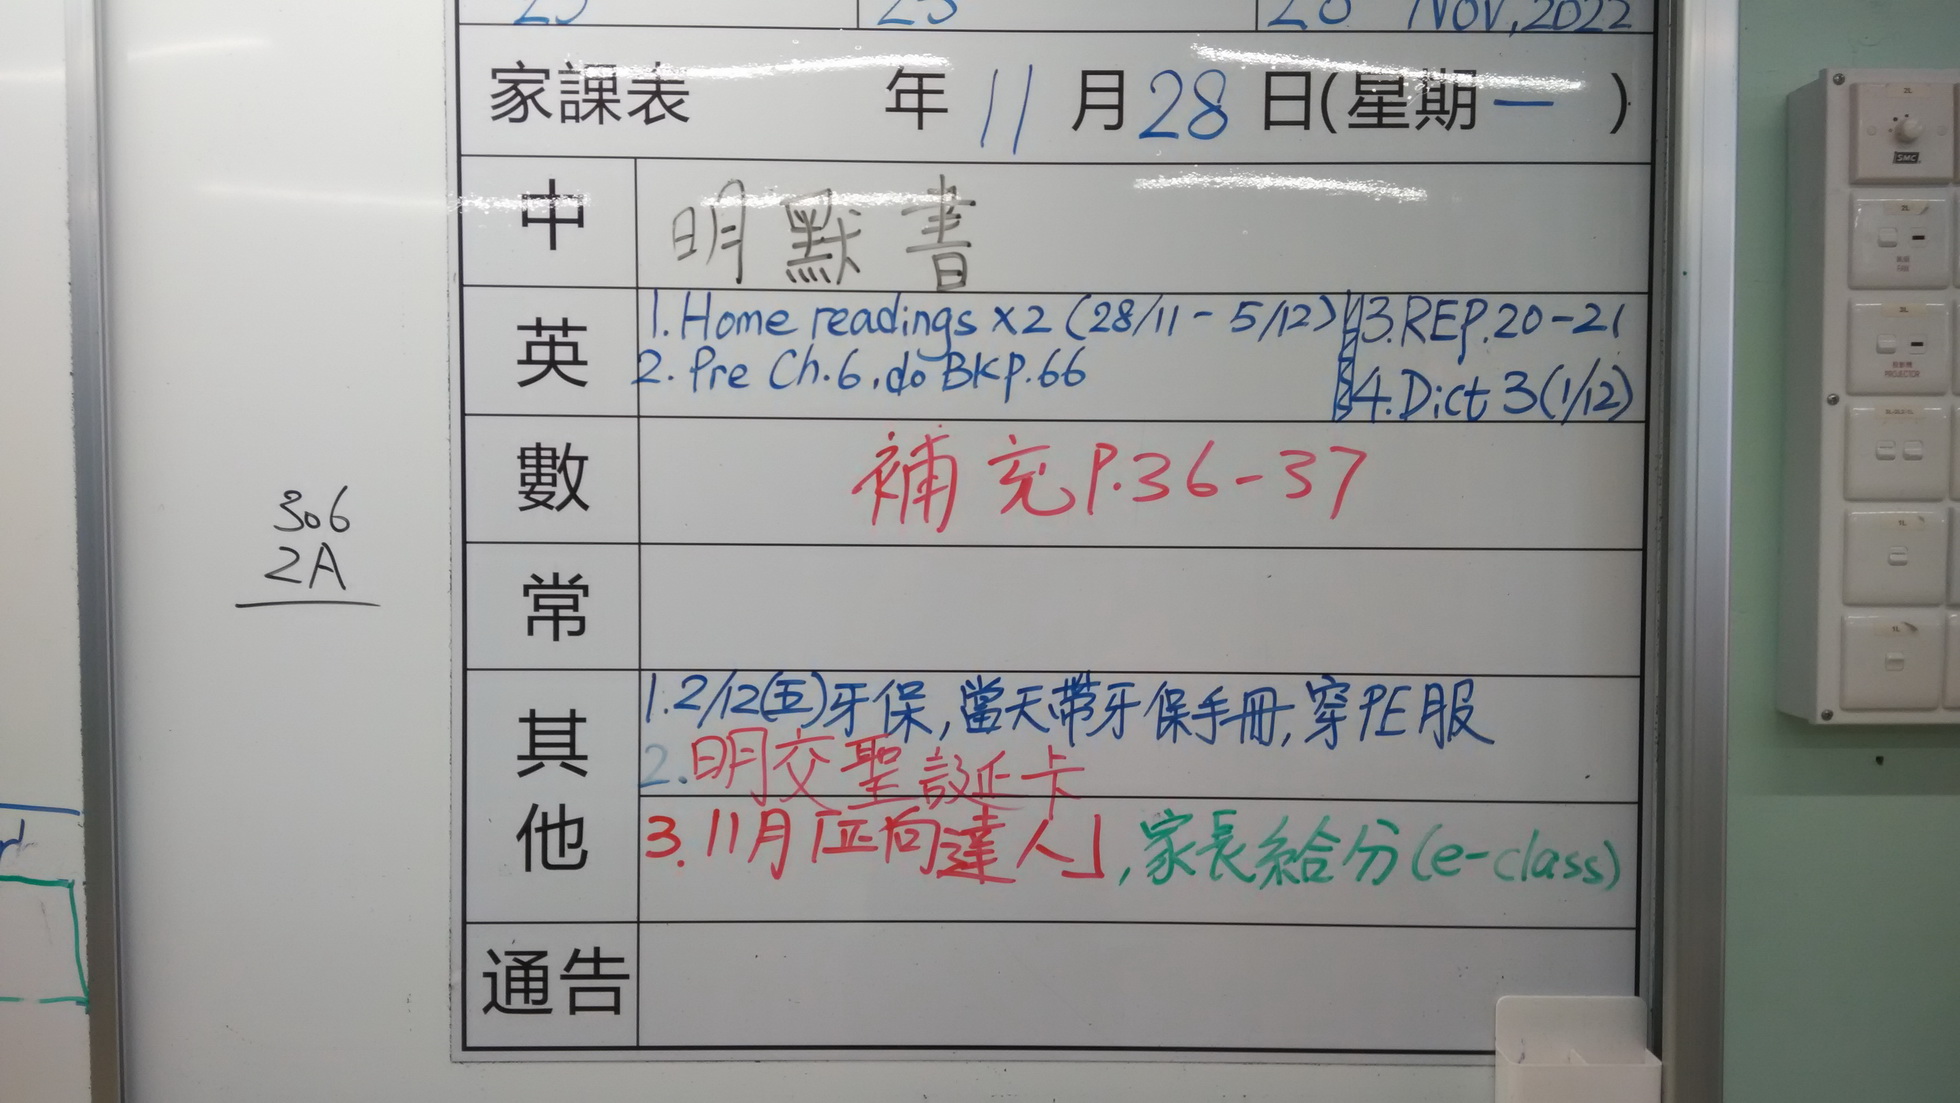 Nov, 2022
家課表 年 11 月 28 日(星期一 )
中 明默書
英 1. Home readings x2 (28/11 - 5/12) 3. REP. 20-21
2. Pre Ch.6, do BKP. 66 4. Dict 3 (1/12)
數 補充P.36-37
常
其他 1. 2/12(五)牙保,當天帶牙保手冊,穿PE服
2. 明交聖誕卡
3. 11月「正向達人」,家長給分(e-class)
通告
306
2A
SMC
FAN
PROJECTOR